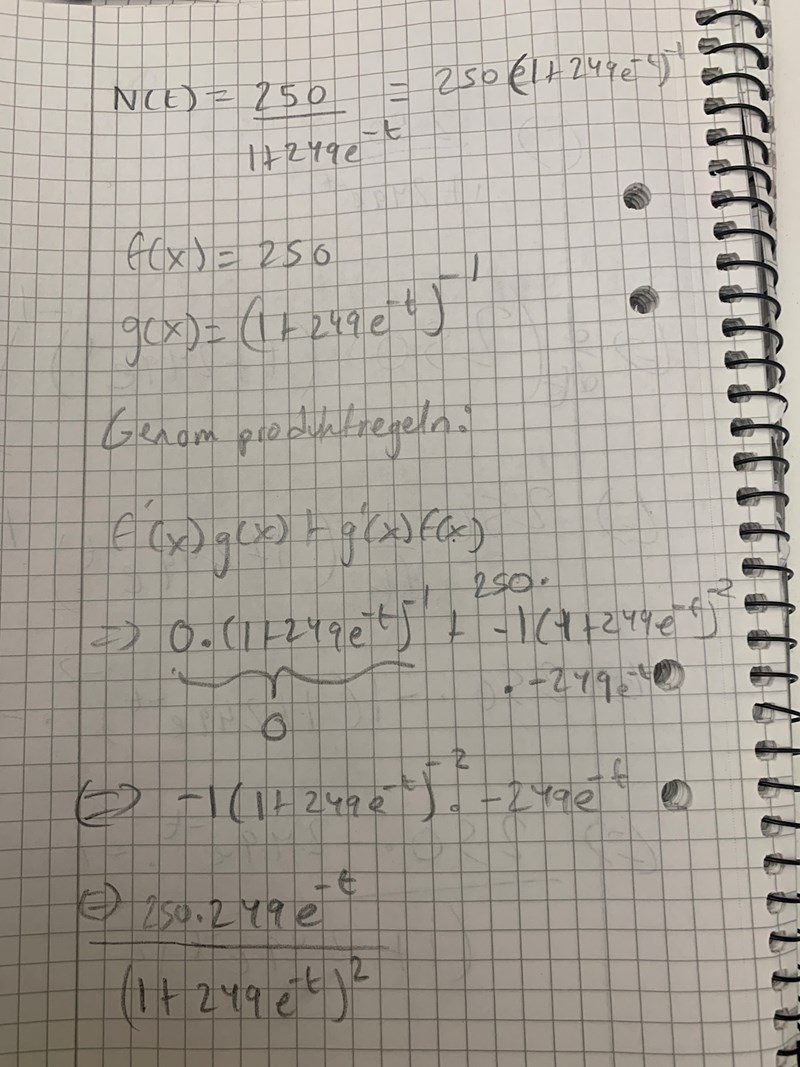 N(t) = 250/(1+249e^-t) = 250(1+249e^-t)^-1
f(x) = 250
g(x) = (1+249e^-t)^-1
Genom produktregeln:
f'(x)g(x) + g'(x)f(x)
250·
=> 0·(1+249e^-t)^-1 + -1(1+249e^-t)^-2
· -249e^-t
0
<=> -1(1+249e^-t)^-2 · -249e^-t
<=> 250·249e^-t
(1+249e^-t)^2